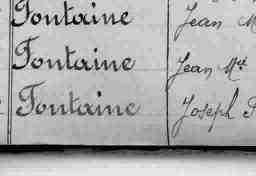 Fontaine Jean M
Fontaine Jean Mct
Fontaine Joseph